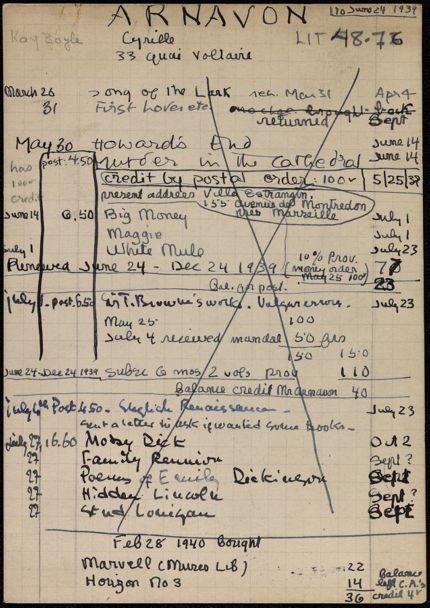 ARNAVON to June 24 1939
Kay Boyle Cyrille LIT 48.76
33 Quai Voltaire
March 26 Song of the Lark ren. Mar 31 Apr 4
31 First Loves etc
returned Sept
May 30 Howard's End June 14
post: 4.50 Murder in the Cathedral June 14
has 100 fr credit credit by postal order: 100 fr 5/25/39
present address Villa Estrangin,
155 avenue de Montredon
près Marseille
June 14 6.50 Big Money July 1
Maggie July 1
July 1 White Mule July 23
Renewed June 24 - Dec 24 1939 (10% Prov. money order May 25 100) 77
23
July 1 - post. 6.50 Sir T. Browne's works. Vulgar errors. July 23
May 25 100
July 4 received mandat 50 frs
150 150
June 24 - Dec 24 1939 Subsc 6 mos 2 vols prov 110
Balance credit Mr Arnavon 40
July 4th Post 4.50 - English Renaissance - July 23
Sent a letter to ask if wanted some books -
July 27 16.60 Moby Dick Oct 2
27 Family Reunion Sept ?
27 Poems of Emily Dickinson Sept
27 Hidden Lincoln Sept ?
27 Stud Lonigan Sept
Feb 28 1940 bought
Marvell (Muses Lib) 22
Horizon No 3 14
36
Balance left C.A.'s credit 4 fr